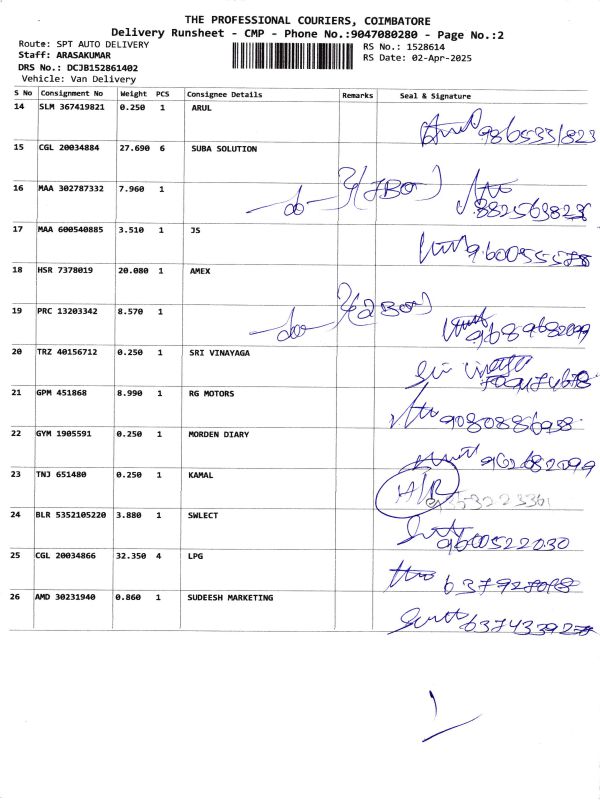 THE PROFESSIONAL COURIERS, COIMBATORE
Delivery Runsheet - CMP - Phone No.:9047080280 - Page No.:2
Route: SPT AUTO DELIVERY RS No.: 1528614
Staff: ARASAKUMAR RS Date: 02-Apr-2025
DRS No.: DCJB152861402
Vehicle: Van Delivery
S No Consignment No Weight PCS Consignee Details Remarks Seal & Signature
14 SLM 367419821 0.250 1 ARUL
9865331823
15 CGL 20034884 27.690 6 SUBA SOLUTION
16 MAA 302787332 7.960 1 -do-
17 MAA 600540885 3.510 1 JS
18 HSR 7378019 20.080 1 AMEX
19 PRC 13203342 8.570 1 -do-
9689682099
20 TRZ 40156712 0.250 1 SRI VINAYAGA
21 GPM 451868 8.990 1 RG MOTORS
9080886938
22 GYM 1905591 0.250 1 MORDEN DIARY
962682099
23 TNJ 651480 0.250 1 KAMAL
24 BLR 5352105220 3.880 1 SWLECT
9600522030
25 CGL 20034866 32.350 4 LPG
26 AMD 30231940 0.860 1 SUDEESH MARKETING